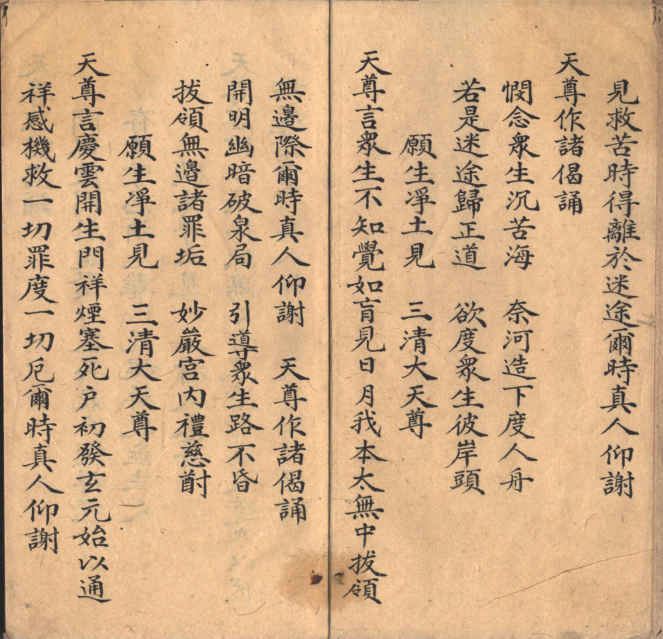 見救苦時得離於迷途爾時真人仰謝
天尊作諸偈誦
憫念衆生沉苦海　奈河造下度人舟
若是迷途歸正道　欲度衆生彼岸頭
願生凈土見　三清大天尊
天尊言衆生不知覺如盲見日月我本太無中拔領
無邊際爾時真人仰謝　天尊作諸偈誦
開明幽暗破泉局　引導衆生路不昏
拔領無邊諸罪垢　妙嚴宮內禮慈尊
願生凈土見　三清大天尊
天尊言慶雲開生門祥煙塞死户初發玄元始以通
祥感機救一切罪度一切厄爾時真人仰謝